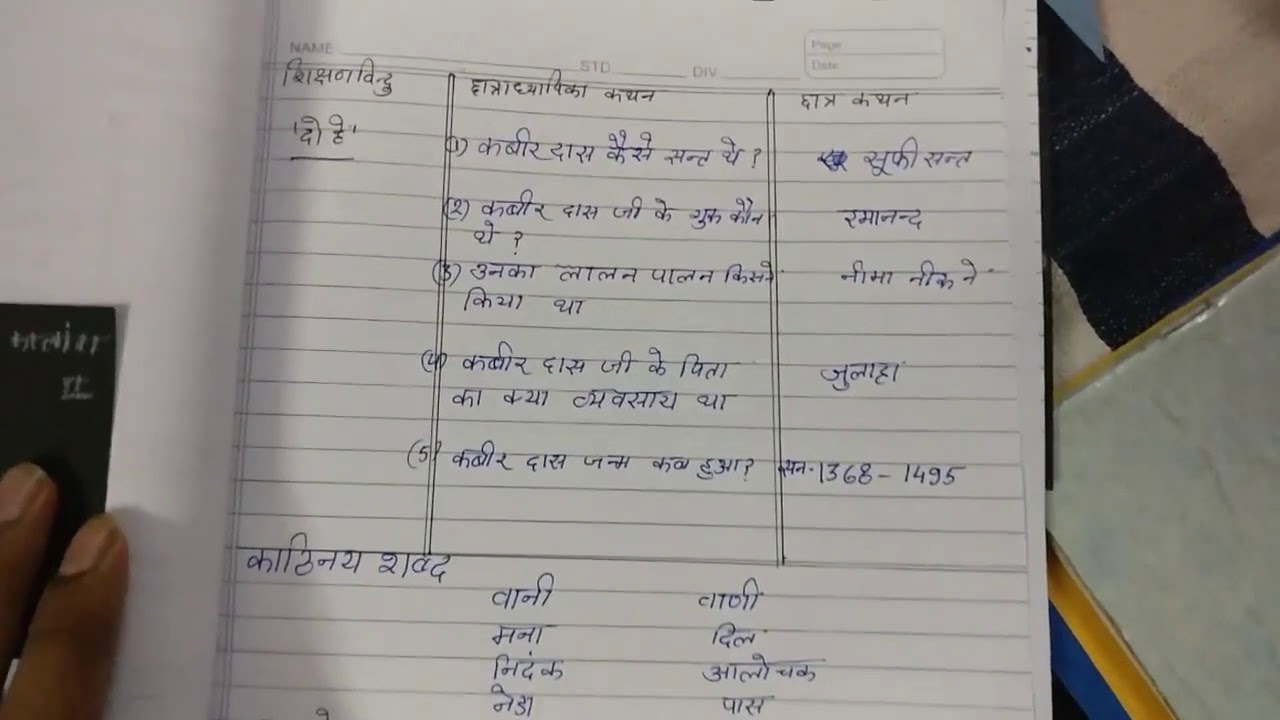 NAME STD DIV
Page
Date
शिक्षणविन्दु छात्राध्यापिका कथन छात्र कथन
'दोहे' (1) कबीर दास कैसे सन्त थे ? सूफी सन्त
(2) कबीर दास जी के गुरू कौन रमानन्द
थे ?
(3) उनका लालन पालन किसने नीमा नीरू ने
किया था
(4) कबीर दास जी के पिता जुलाहा
का क्या व्यवसाय था
(5) कबीर दास जन्म कब हुआ? सन-1368-1495
काठिनय शब्द
वानी वाणी
मना दिल
निदंक आलोचक
नेडा पास
II